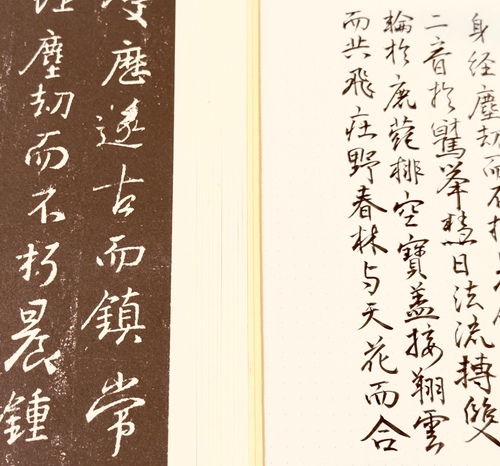 身經塵劫而不朽
二音於鷲峯慧日法流轉雙
輪於鹿苑排空寶蓋接翔雲
而共飛庄野春林与天花而合
歷遂古而鎮常
塵劫而不朽晨鍾